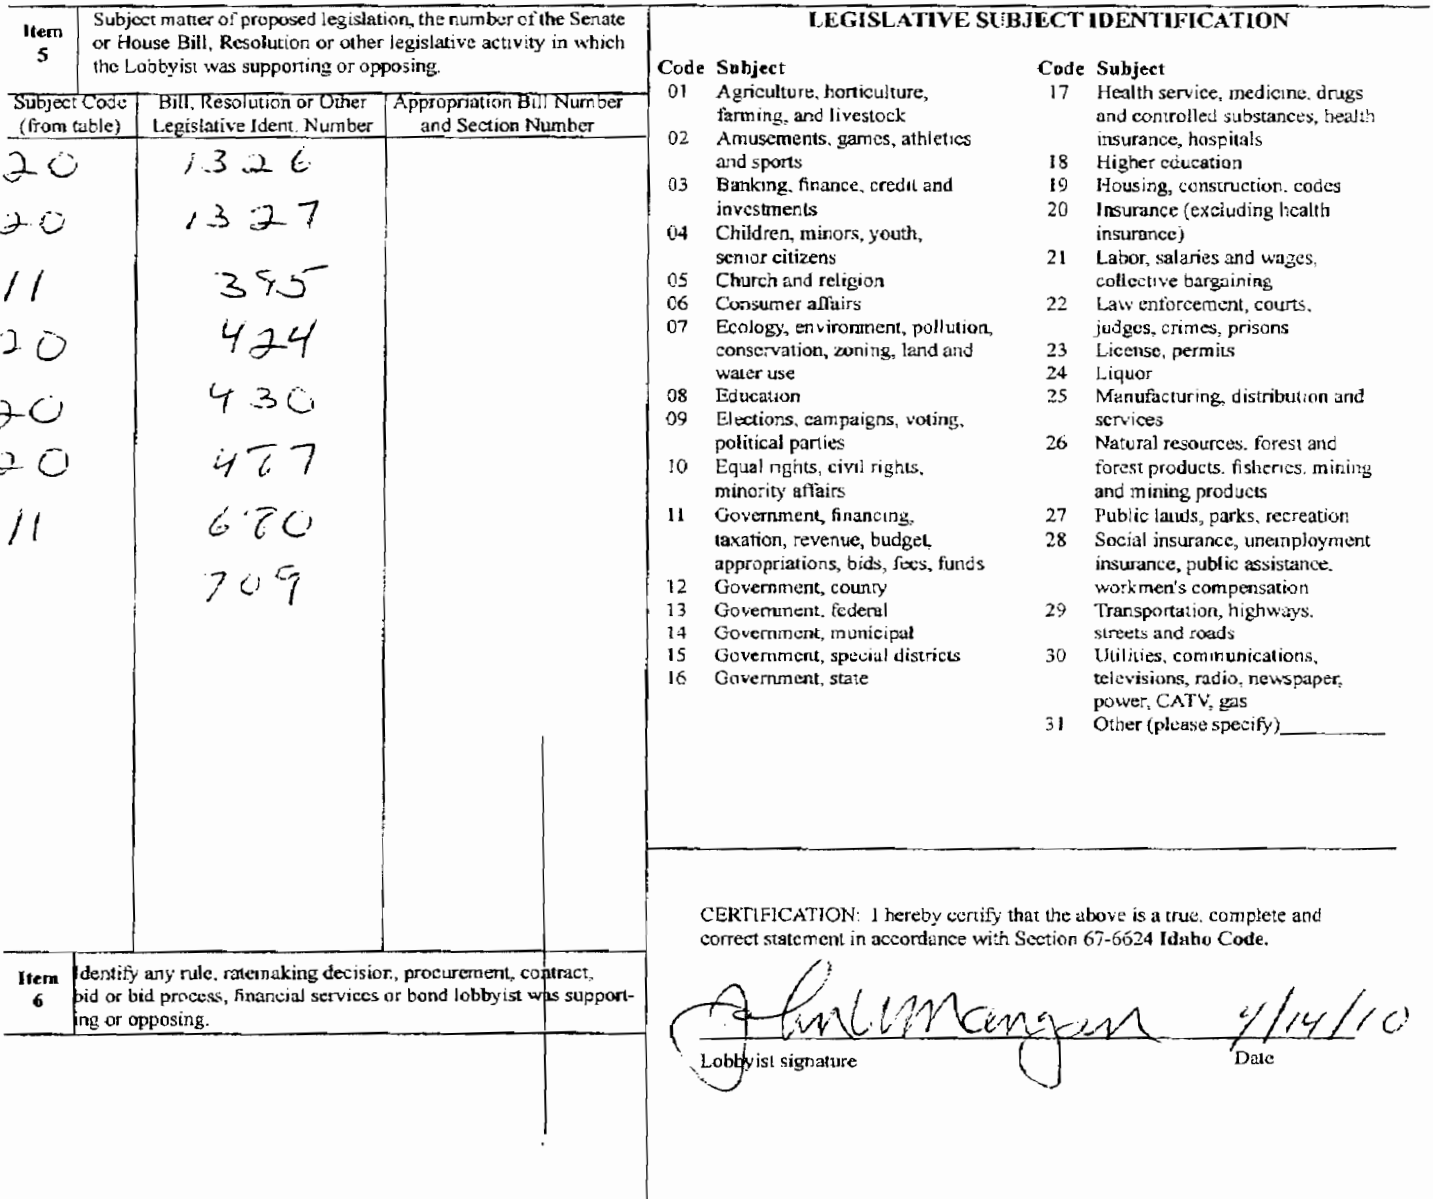 Item
5
Subject matter of proposed legislation, the number of the Senate
or House Bill, Resolution or other legislative activity in which
the Lobbyist was supporting or opposing.
Subject Code
(from table)
Bill, Resolution or Other
Legislative Ident. Number
Appropriation Bill Number
and Section Number
20 1326
20 1327
11 395
20 424
20 430
20 487
11 680
709
Item
6
Identify any rule, ratemaking decision, procurement, contract,
bid or bid process, financial services or bond lobbyist was support-
ing or opposing.
LEGISLATIVE SUBJECT IDENTIFICATION
Code Subject
01 Agriculture, horticulture,
farming, and livestock
02 Amusements, games, athletics
and sports
03 Banking, finance, credit and
investments
04 Children, minors, youth,
senior citizens
05 Church and religion
06 Consumer affairs
07 Ecology, environment, pollution,
conservation, zoning, land and
water use
08 Education
09 Elections, campaigns, voting,
political parties
10 Equal rights, civil rights,
minority affairs
11 Government, financing,
taxation, revenue, budget,
appropriations, bids, fees, funds
12 Government, county
13 Government, federal
14 Government, municipal
15 Government, special districts
16 Government, state
Code Subject
17 Health service, medicine, drugs
and controlled substances, health
insurance, hospitals
18 Higher education
19 Housing, construction, codes
20 Insurance (excluding health
insurance)
21 Labor, salaries and wages,
collective bargaining
22 Law enforcement, courts,
judges, crimes, prisons
23 License, permits
24 Liquor
25 Manufacturing, distribution and
services
26 Natural resources, forest and
forest products, fisheries, mining
and mining products
27 Public lands, parks, recreation
28 Social insurance, unemployment
insurance, public assistance,
workmen's compensation
29 Transportation, highways,
streets and roads
30 Utilities, communications,
televisions, radio, newspaper,
power, CATV, gas
31 Other (please specify)
CERTIFICATION: I hereby certify that the above is a true, complete and
correct statement in accordance with Section 67-6624 Idaho Code.
Mangan 4/14/10
Lobbyist signature Date